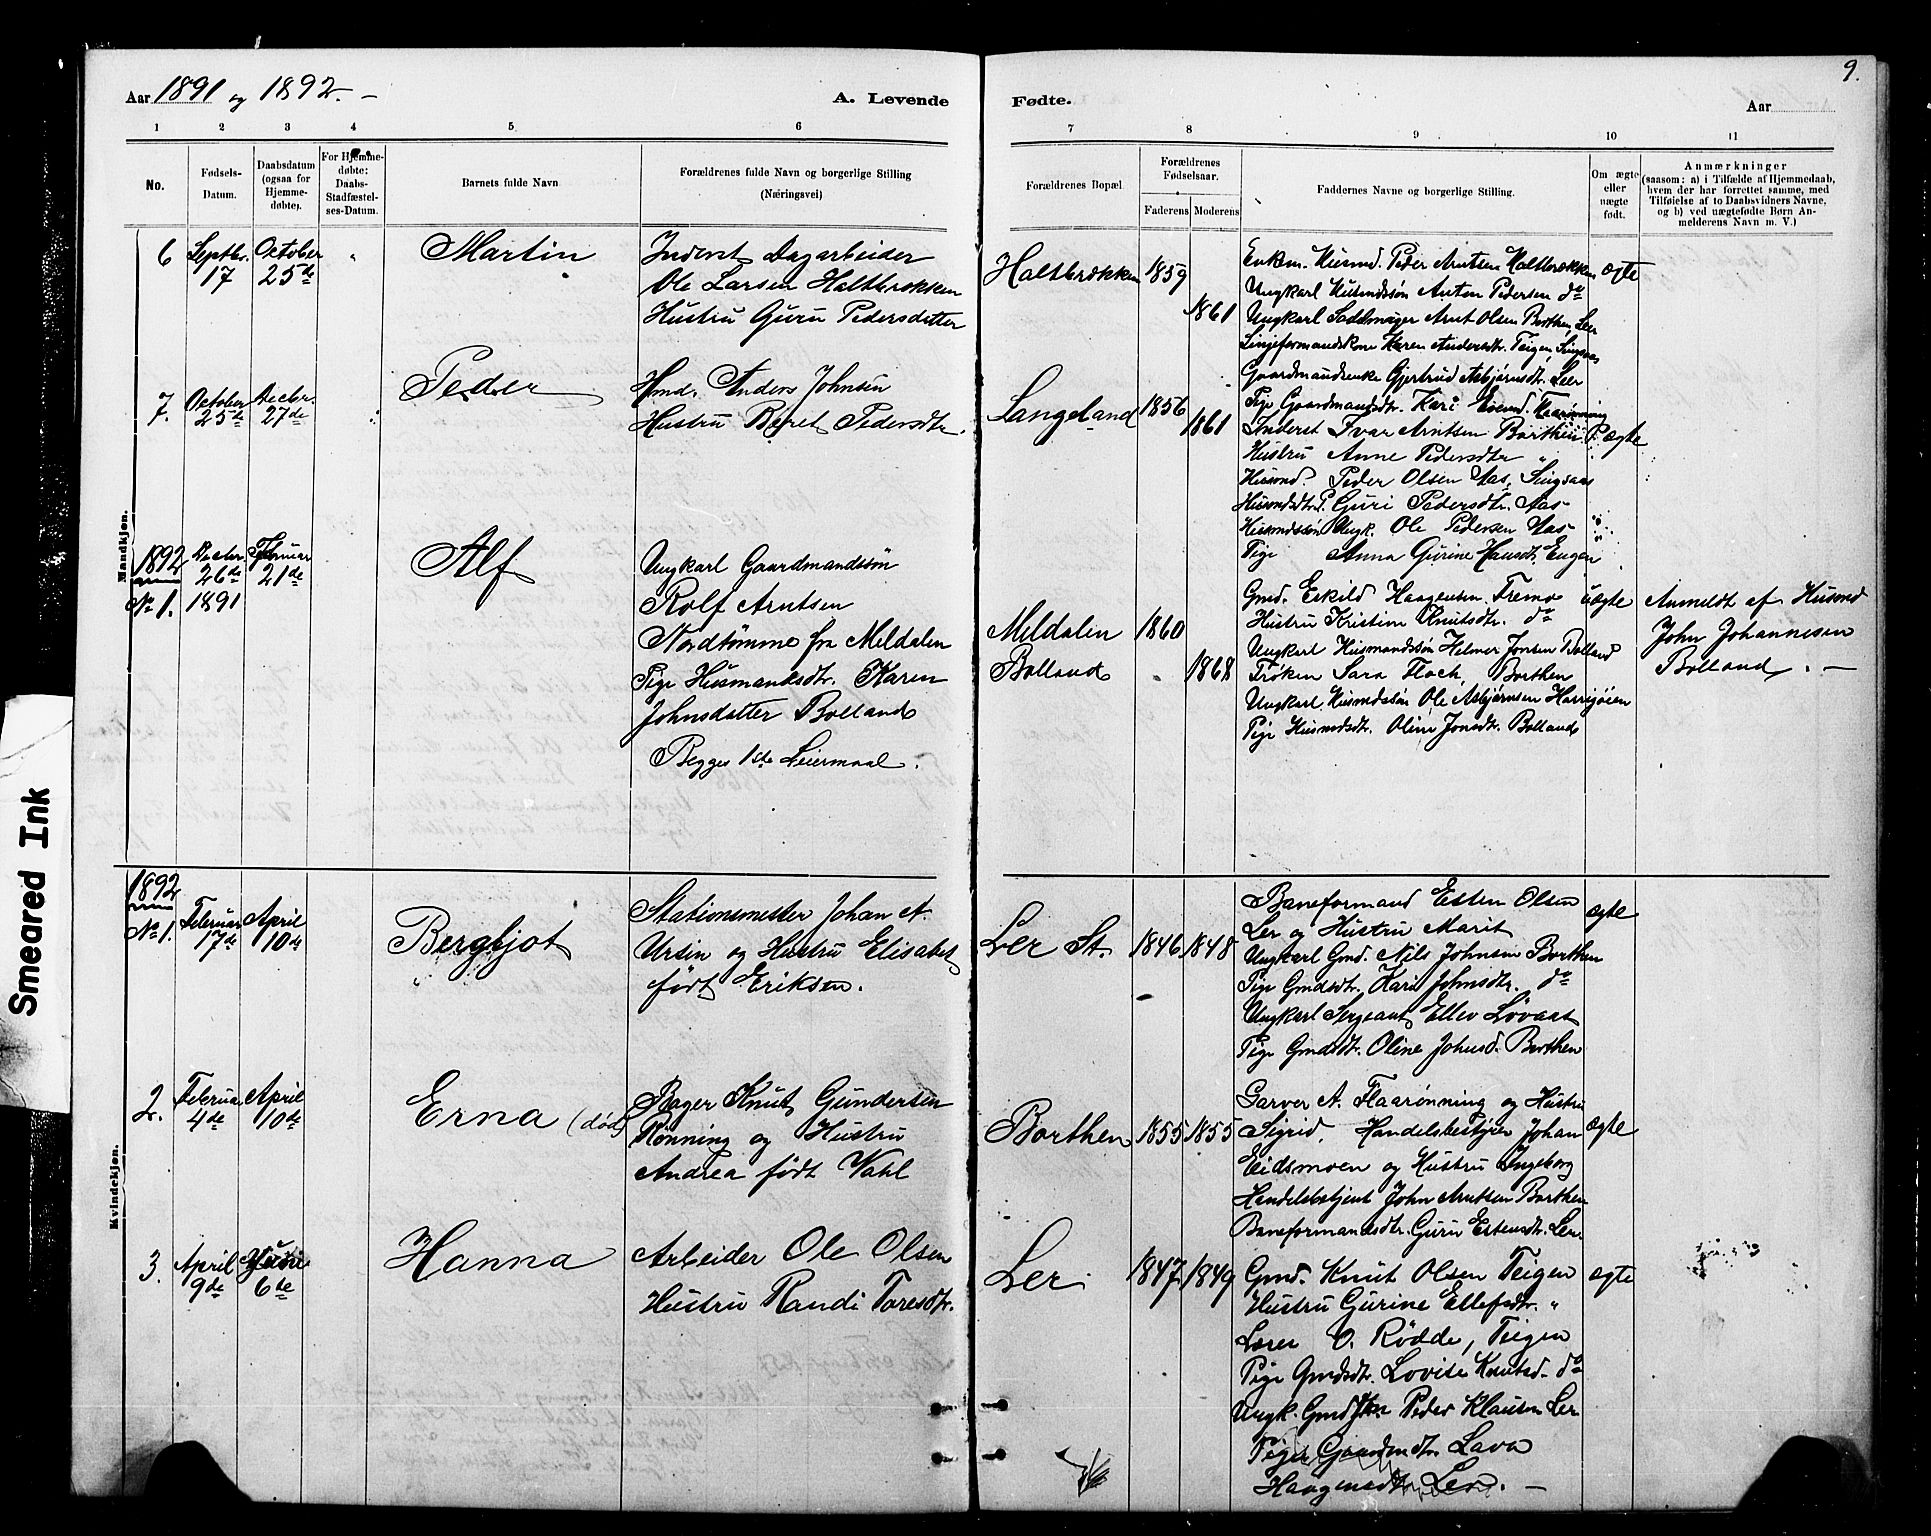 Aar 1891 og 1892. -
A. Levende
Fødte.
Aar
9.
1 2 3 4 5 6 7 8 9 10 11
No.
Fødsels-
Datum.
Daabsdatum
(ogsaa for
Hjemme-
døbte).
For Hjemme-
døbte:
Daabs-
Stadfæstel-
ses-Datum.
Barnets fulde Navn
Forældrenes fulde Navn og borgerlige Stilling
(Næringsvei)
Forældrenes Bopæl.
Forældrenes
Fødselsaar.
Faderens
Moderens
Faddernes Navne og borgerlige Stilling.
Om ægte
eller
uægte
født.
Anmærkninger
(saasom: a) i Tilfælde af Hjemmedaab,
hvem der har forrettet samme, med
Tilføielse af to Daabsvidners Navne,
og b) ved uægtefødte Børn An-
melderens Navn m. V.)
Mandkjøn.
6
Septbr.
17
October
25de
"
Martin
Inderst Dagarbeider
Ole Larsen Haltbrækken
Hustru Guru Pedersdatter
Haltbrækken
1859
1861
Enkm. Husmd. Peder Arntsen Haltbrækken
Ungkarl Husmdssøn Anton Pedersen do
Ungkarl Sadelmager Arnt Olsen Borthen, Ler
Linjeformandskone Karen Andersdtr. Teigen, Singsaas
Gaardmandsenke Gjertrud Asbjørnsdtr. Leer
Pige Gaardmandsdtr. Kari Eivend. Flaarønning
ægte
7.
October
25de
Decbr.
27de
Peder
Hmd. Anders Johnsen
Hustru Beret Pedersdtr.
Langeland
1856
1861
Inderst Ivar Arntsen Borthen
Hustru Anne Pedersdtr "
Husmd. Peder Olsen Aas, Singsaas
Husmdsdtr P. Guri Pedersdtr. Aas "
Husmdssøn Ungk. Ole Pedersen Aas "
Pige Anna Gurine Hansdt. Engen
ægte
1892
No 1.
Decbr
26de
1891
Februar
21de
Alf
Ungkarl Gaardmandssøn
Rolf Arntsen
Nordtømme fra Meldalen
Pige Husmandsdtr. Karen
Johnsdatter Bolland
Begges 1ste Leiermaal.
Meldalen
Bolland
1860
1868
Gmd. Eskild Haagensen Fremo
Hustru Kristine Knutsdtr. do
Ungkarl Husmandssøn Helmer Jonsen Bolland
Frøken Sara Floch, Borthen
Ungkarl Husmdssøn Ole Asbjørnsen Harrijøien
Pige Husmdsdtr. Oline Jonsdtr. Bolland
uægte
Anmeldt af Husmd
John Johannesen
Bolland. -
Kvindekjøn.
1892
No 1.
Februar
17de
April
10de
Bergljot
Stationsmester Johan A.
Ursin og Hustru Elisabet
født Eriksen.
Ler St.
1846
1848
Baneformand Esten Olsen
Ler og Hustru Marit
Ungkarl Gmd. Nils Johnsen Borthen
Pige Gmdsdtr. Kari Johnsdtr. do
Ungkarl Sergeant Ellev Løvaas
Pige Gmdsdtr. Oline Johnsd. Borthen
ægte
2.
Februar
4de
April
10de
Erna (død)
Bager Knut Gundersen
Rønning og Hustru
Andrea født Wahl
Borthen
1855
1855
Garver A. Flaarønning og Hustru
Sigrid, Handelsbestyrer Johan
Eidsmoen og Hustru Ingeborg
Handelsbetjent John Arntsen Borthen
Baneformandsdtr. Guru Estensdtr. Ler.
ægte
3.
April
9de
Juni
6de
Hanna
Arbeider Ole Olsen
Hustru Randi Toresdtr.
Ler
1847
1849
Gmd. Knut Olsen Teigen
Hustru Gurine Ellefsdtr. "
Lærer O. Rødde, Teigen
Pige Gmdsdtr. Lovise Knutsd. do
Ungk. Gmd Peder Klausen Ler
Pige Gaardmdtr. Lava
Haagensdtr Ler. -
ægte
Smeared Ink